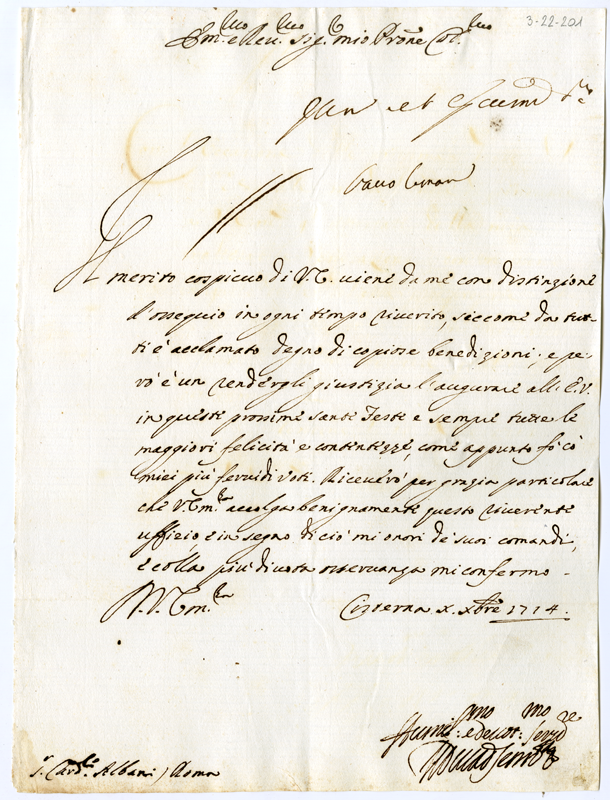 3-22-201
Em.mo e Rev.mo Sig.r mio Prone Col.mo
Il merito cospicuo di V. E. viene da me con distinzione
d'ossequio in ogni tempo riverito, siccome da tut-
ti è acclamato degno di copiose benedizioni; e pe-
rò è un rendergli giustizia l'augurare all'E. V.
in questi prossime Sante Feste e sempre tutte le
maggiori felicità e contentezze, come appunto fò cò
miei più fervidi voti. Riceverò per grazia particolare
che V. Em.za accolga benignamente questo riverente
uffizio, e in segno di ciò mi onori de suoi comandi,
e colla più divota osservanza mi confermo
D. V. Em.za Cisterna X Xbre 1714.
Humil.mo e devot.mo Serv.re
S. Card.le Albani / Roma